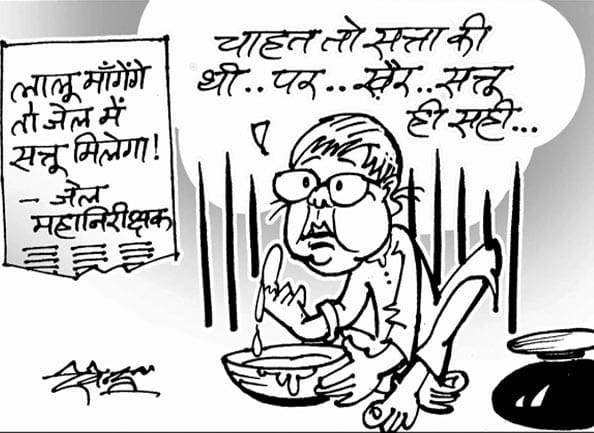 लालू माँगेंगे
तो जेल में
सत्तू मिलेगा!
- जेल
महानिरीक्षक
चाहत तो सत्ता की
थी..पर..ख़ैर..सत्तू
ही सही...